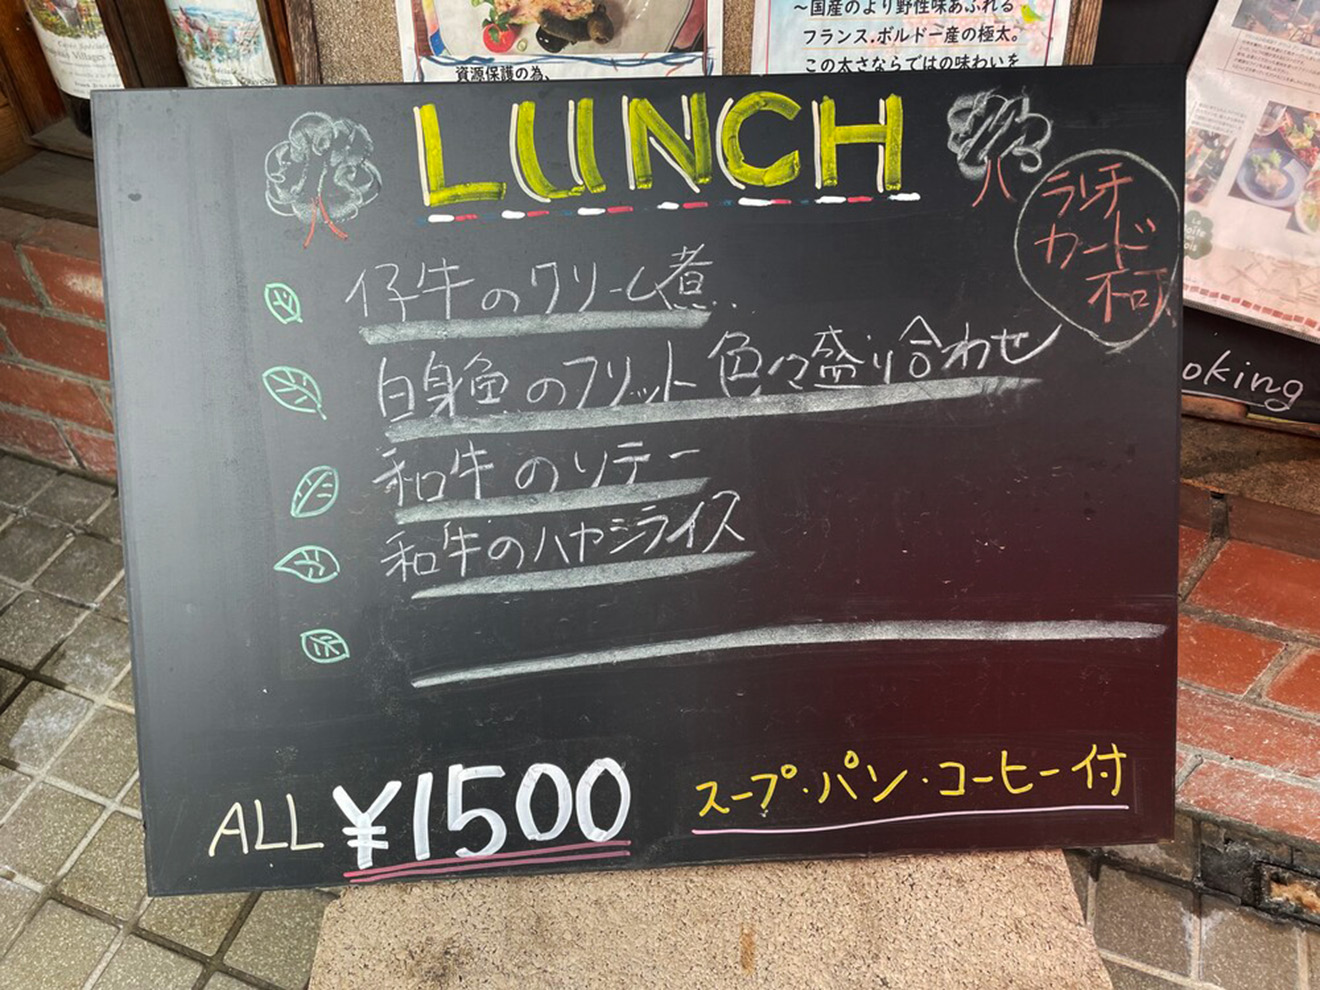 ~国産のより野性味あふれる
フランス.ボルドー産の極太。
この太さならではの味わいを
資源保護の為、
LUNCH
ランチ
カード
不可
仔牛のクリーム煮
白身魚のフリット 色々盛り合わせ
和牛のソテー
和牛のハヤシライス
oking
ALL ¥1500
スープ・パン・コーヒー付